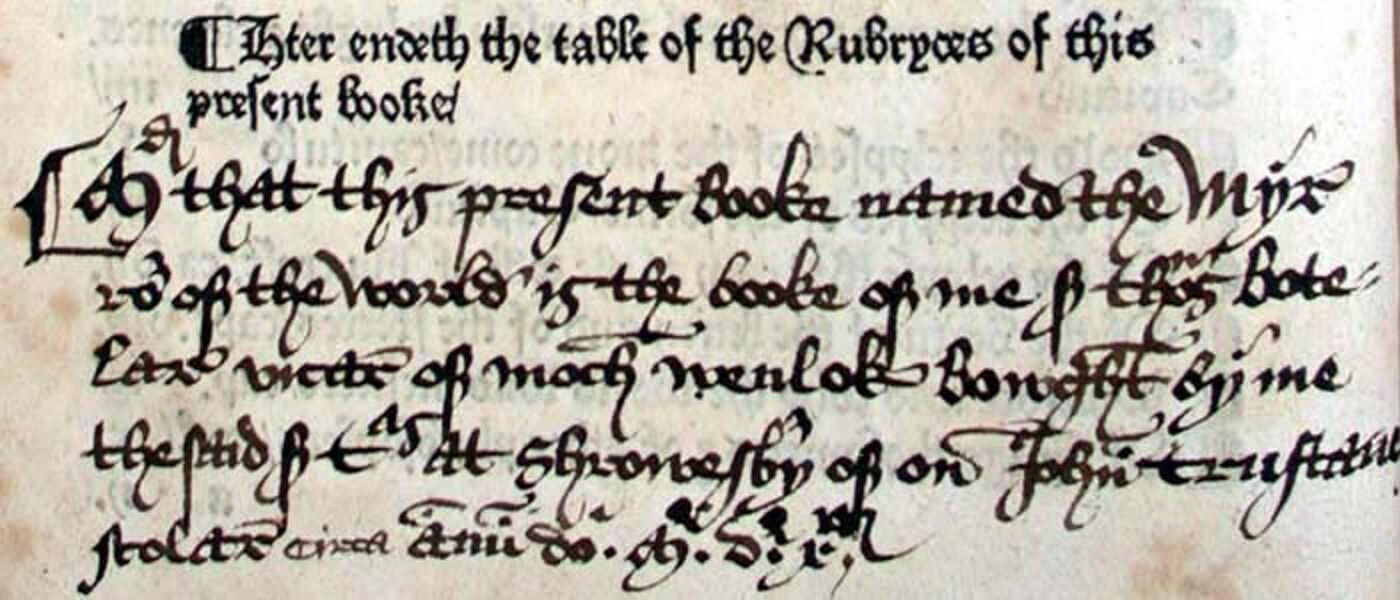 ¶ Hier endeth the table of the Rubryces of this
present booke/
Md that this present booke named the Myr
ro of the world is the booke of me s thoms bote-
lar vicar of moch wenlok bowght by me
the said s tas at Shrowesby of on John trustan
scolar circa annu do. M. d.